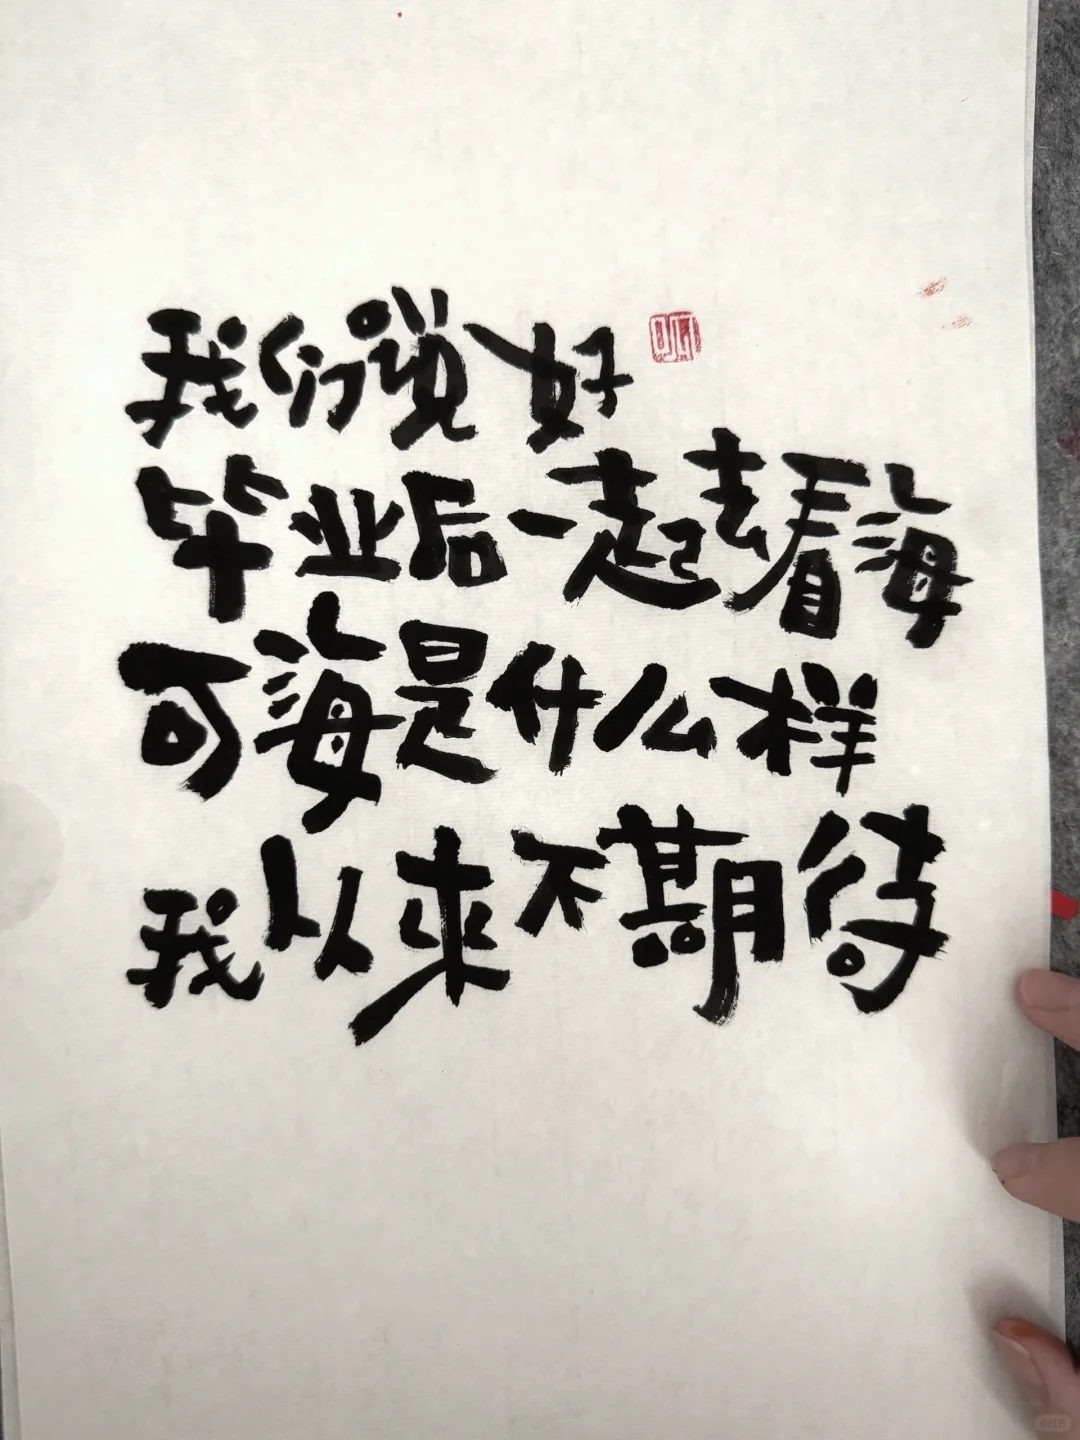 我们说好
毕业后一起去看海
可海是什么样
我从来不期待